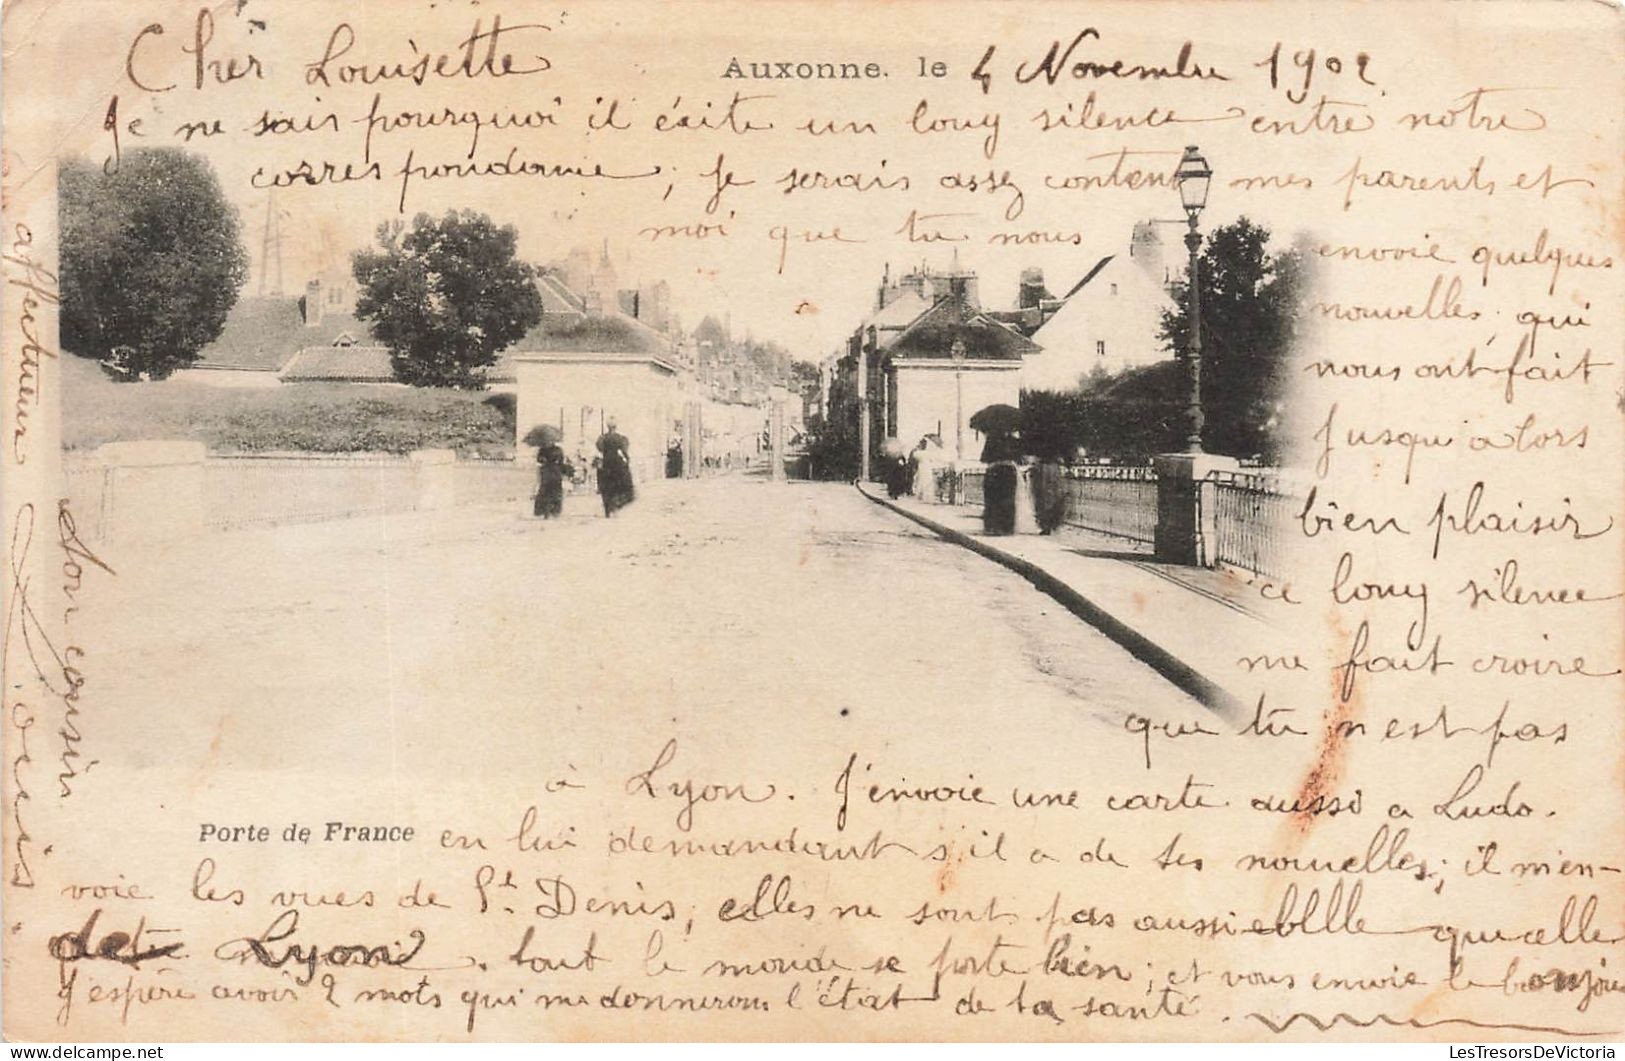 Cher Louisette
Auxonne. le 4 Novembre 1902
Je ne sais pourquoi il éxite un long silence entre notre
correspondance, je serais assez content mes parents et
moi que tu nous envoie quelques
nouvelles, qui
nous ont fait
jusqu'alors
bien plaisir
ce long silence
me fait croire
que tu n'est pas
à Lyon. J'envoie une carte aussi a Ludo.
Porte de France
en lui demandant s'il a de tes nouvelles; il m'en-
voie les vues de St. Denis, elles ne sont pas aussi que celle
de Lyon. tout le monde se porte bien; et vous envoie le bonjour
J'espère avoir 2 mots qui me donnerons l'état de ta santé.
Ton cousin
affectueux
Louis
LesTresorsDeVictoria